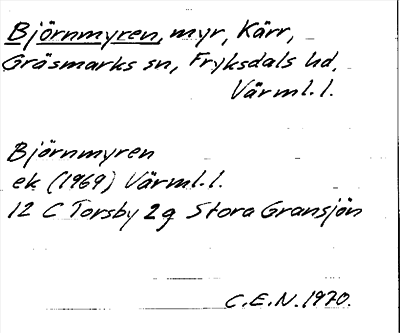 Björnmyren, myr, Kärr,
Gräsmarks sn, Fryksdals hd,
Värml.l.
Björnmyren
ek (1969) Värml.l.
12 C Torsby 2g Stora Gransjön
C.E.N. 1970.